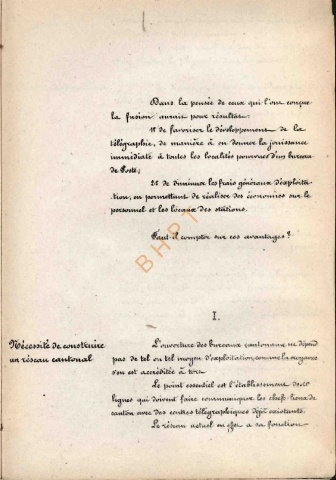 Dans la pensée de ceux qui l'ont conçue
la fusion aurait pour résultat:
1º de favoriser le développement de la
télégraphie, de manière à en donner la jouissance
immédiate à toutes les localités pourvues d'un bureau
de Poste;
2º de diminuer les frais généraux d'exploita-
tion, en permettant de réaliser des économies sur le
personnel et les locaux des stations.
Faut-il compter sur ces avantages?
BHPT
I.
Nécessité de construire
un réseau cantonal
L'ouverture des bureaux cantonaux ne dépend
pas de tel ou tel moyen d'exploitation, comme la croyance
s'en est accréditée à tort.
Le point essentiel est l'établissement des
lignes qui doivent faire communiquer les chefs-lieux de
canton avec des centres télégraphiques déjà existants.
Le réseau actuel en effet a sa fonction